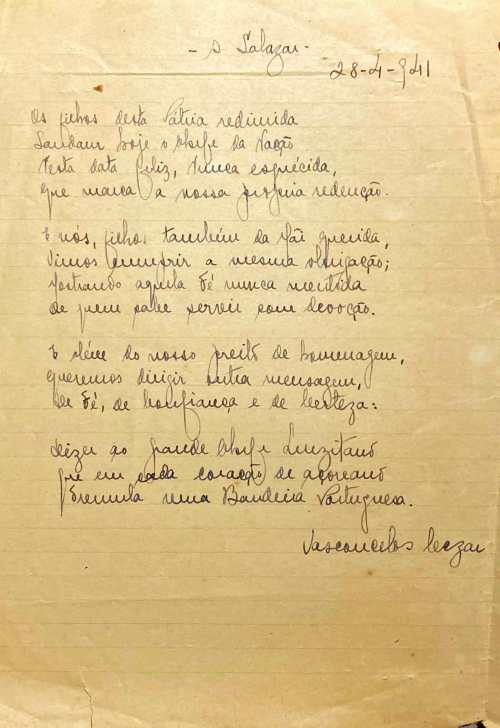 - A Salazar -
28-4-941
Os filhos desta Pátria redimida
Saudam hoje o Chefe da Nação
Nesta data feliz, nunca esquécida,
que marca a nossa própria redenção.
E nós, filhos também da Mãi querida,
Vimos cumprir a mesma obrigação;
Mostrando aquela Fé nunca mentida
de quem sabe servir com devoção.
E além do nosso preito de homenagem,
queremos dirigir outra mensagem,
de Fé, de Confiança e de Certeza:
dizer ao grande Chefe Luzitano
que em cada coração de açoreano
Tremula uma Bandeira Portuguesa.
Vasconcelos